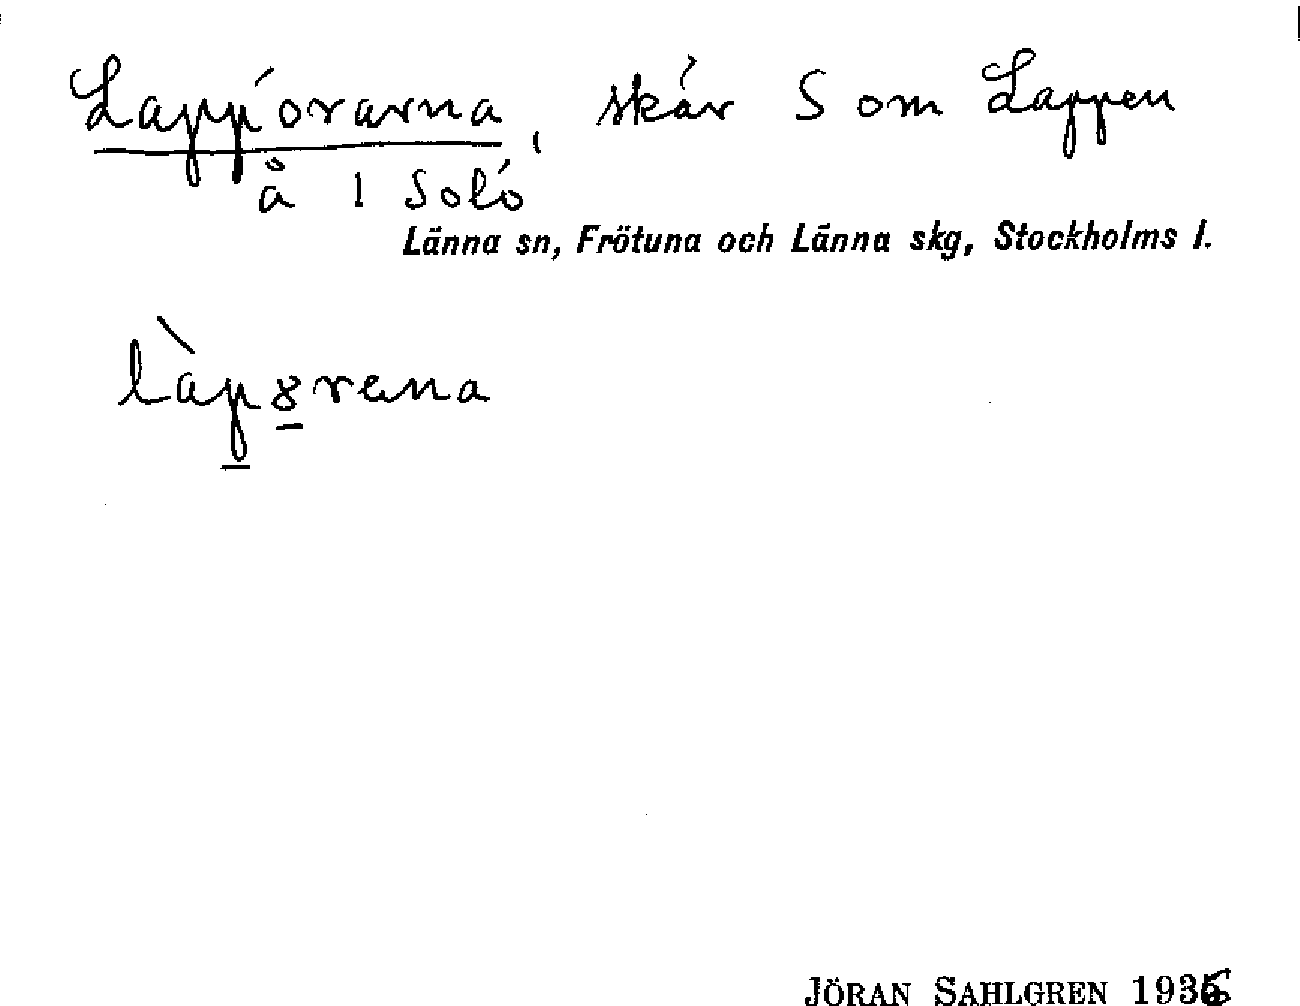 Lappörarna, skär S om Lappen
å 1 Solö
Länna sn, Frötuna och Länna skg, Stockholms l.
làp8rena
JÖRAN SAHLGREN 1936